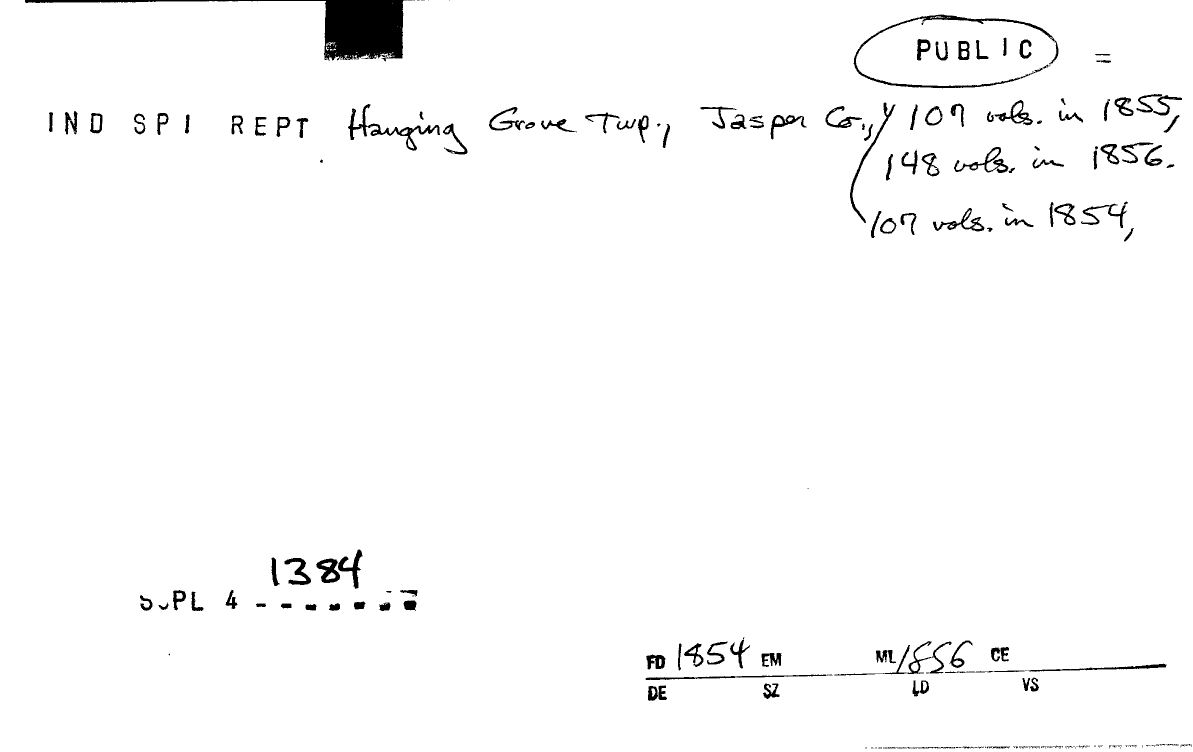 PUBLIC =
IND SPI REPT Hanging Grove Twp., Jasper Co., 107 vols. in 1855,
148 vols. in 1856.
107 vols. in 1854,
1384
SUPL 4 - - - - - - -
FD 1854 EM ML 1856 CE
DE SZ LD VS